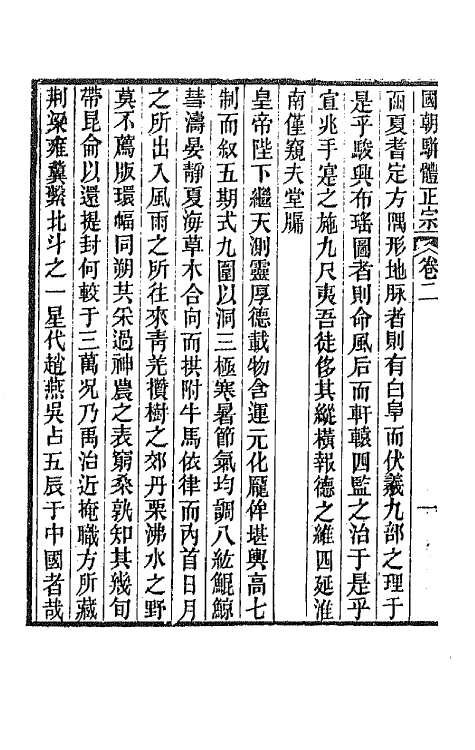 國朝駢體正宗 卷二 一
函夏者定方隅形地脉者則有白阜而伏羲九部之理于
是乎駿興布瑤圖者則命風后而軒轅四監之治于是乎
宣兆手寔之施九尺夷吾徒侈其縱橫報德之維四延淮
南僅窺夫堂牖
皇帝陛下繼天測靈厚德載物含運元化龎侔堪輿高七
制而叙五期式九圍以洞三極寒暑節氣均調八紘鯤鯨
彗濤晏靜夏海草木合向而拱附牛馬依律而内首日月
之所出入風雨之所往來靑羌攢樹之郊丹栗沸水之野
莫不薦版環幅同朔共宋過神農之表窮桑孰知其幾旬
帶昆侖以還提封何較于三萬况乃禹治近掩職方所藏
荆梁雍冀繫北斗之一星代趙燕吳占五辰于中國者哉